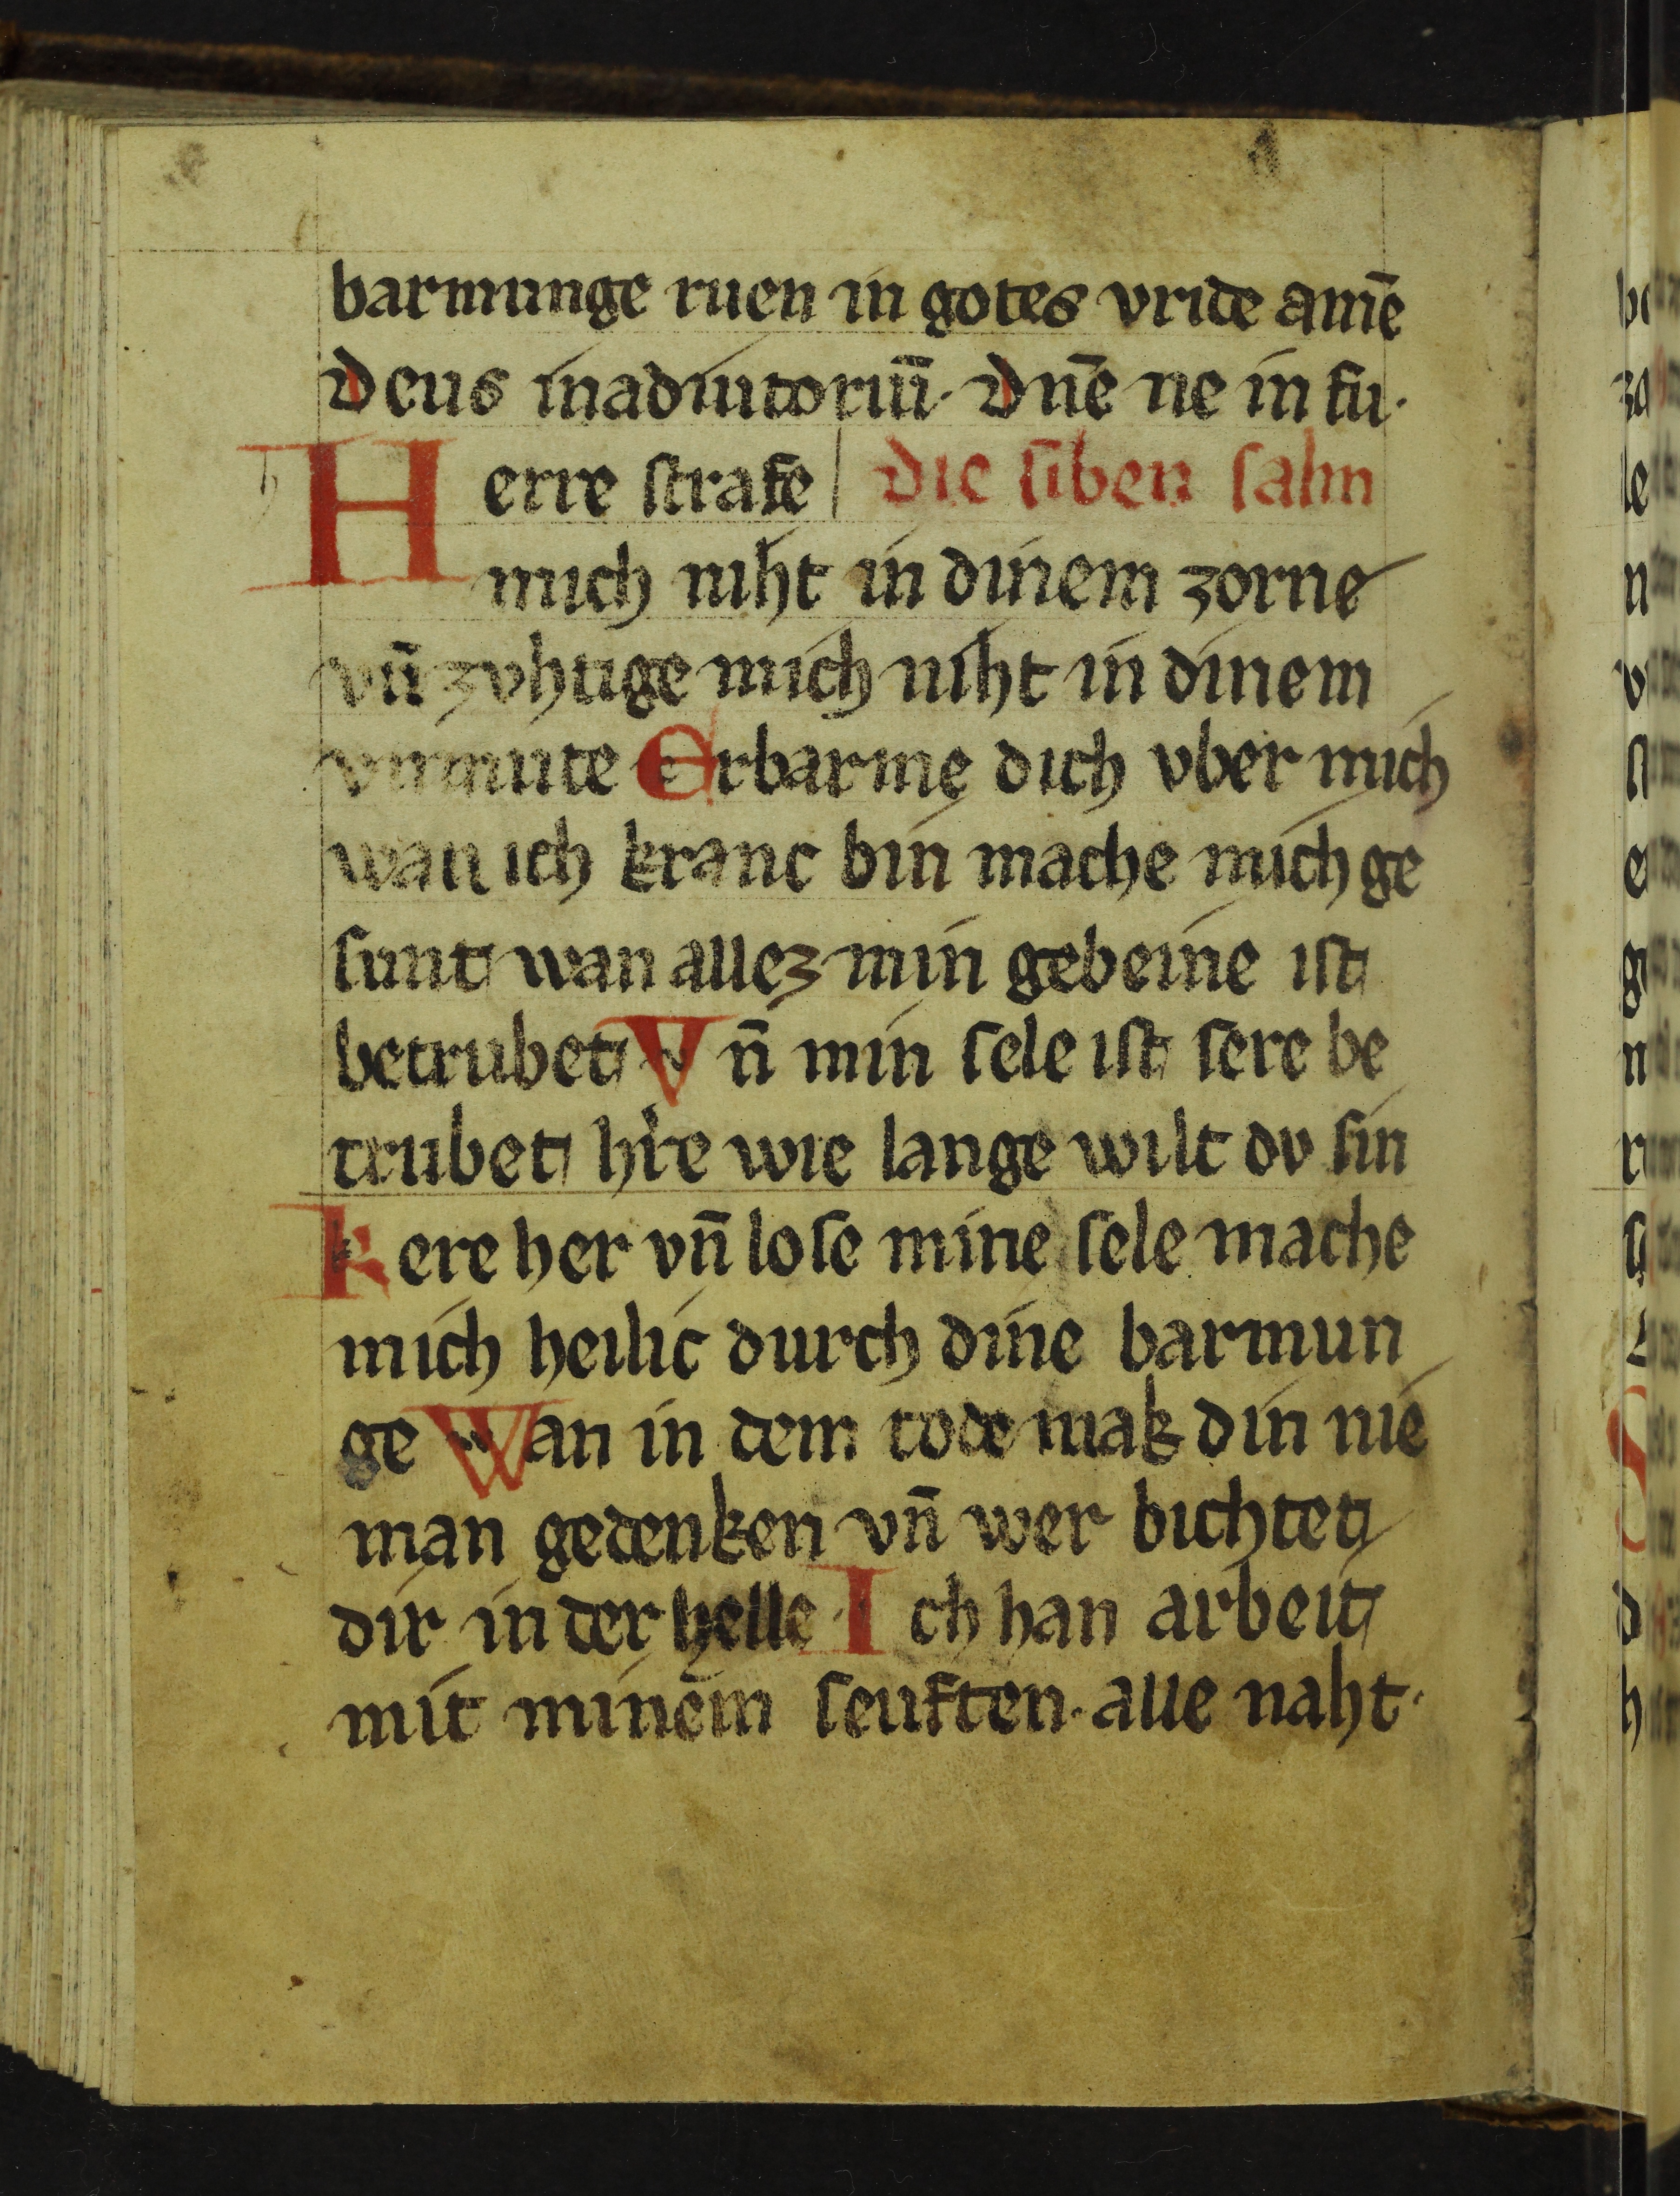 barmunge ruen in gotes vride amē
Deus inadiutoriū· Dnē ne in fu·
Herre strafe | die siben salm
mich niht in dinem zorne
vn̄ zvhtige mich niht in dinem
vnmute Erbarme dich vber mich
wan ich kranc bin mache mich ge
sunt wan allez min gebeine ist
betrubet Vn̄ min sele ist sere be
trubet hr̓e wie lange wilt dv sin
kere her vn̄ lose mine sele mache
mich heilic durch dine barmun
ge Wan in dem tode mak din nie
man gedenken vn̄ wer bichtet
dir in der helle Ich han arbeit
mit minem seuften· alle naht·